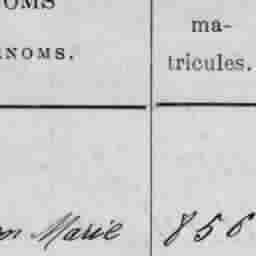 OMS
RNOMS.
ma-
tricules.
on Marie
856